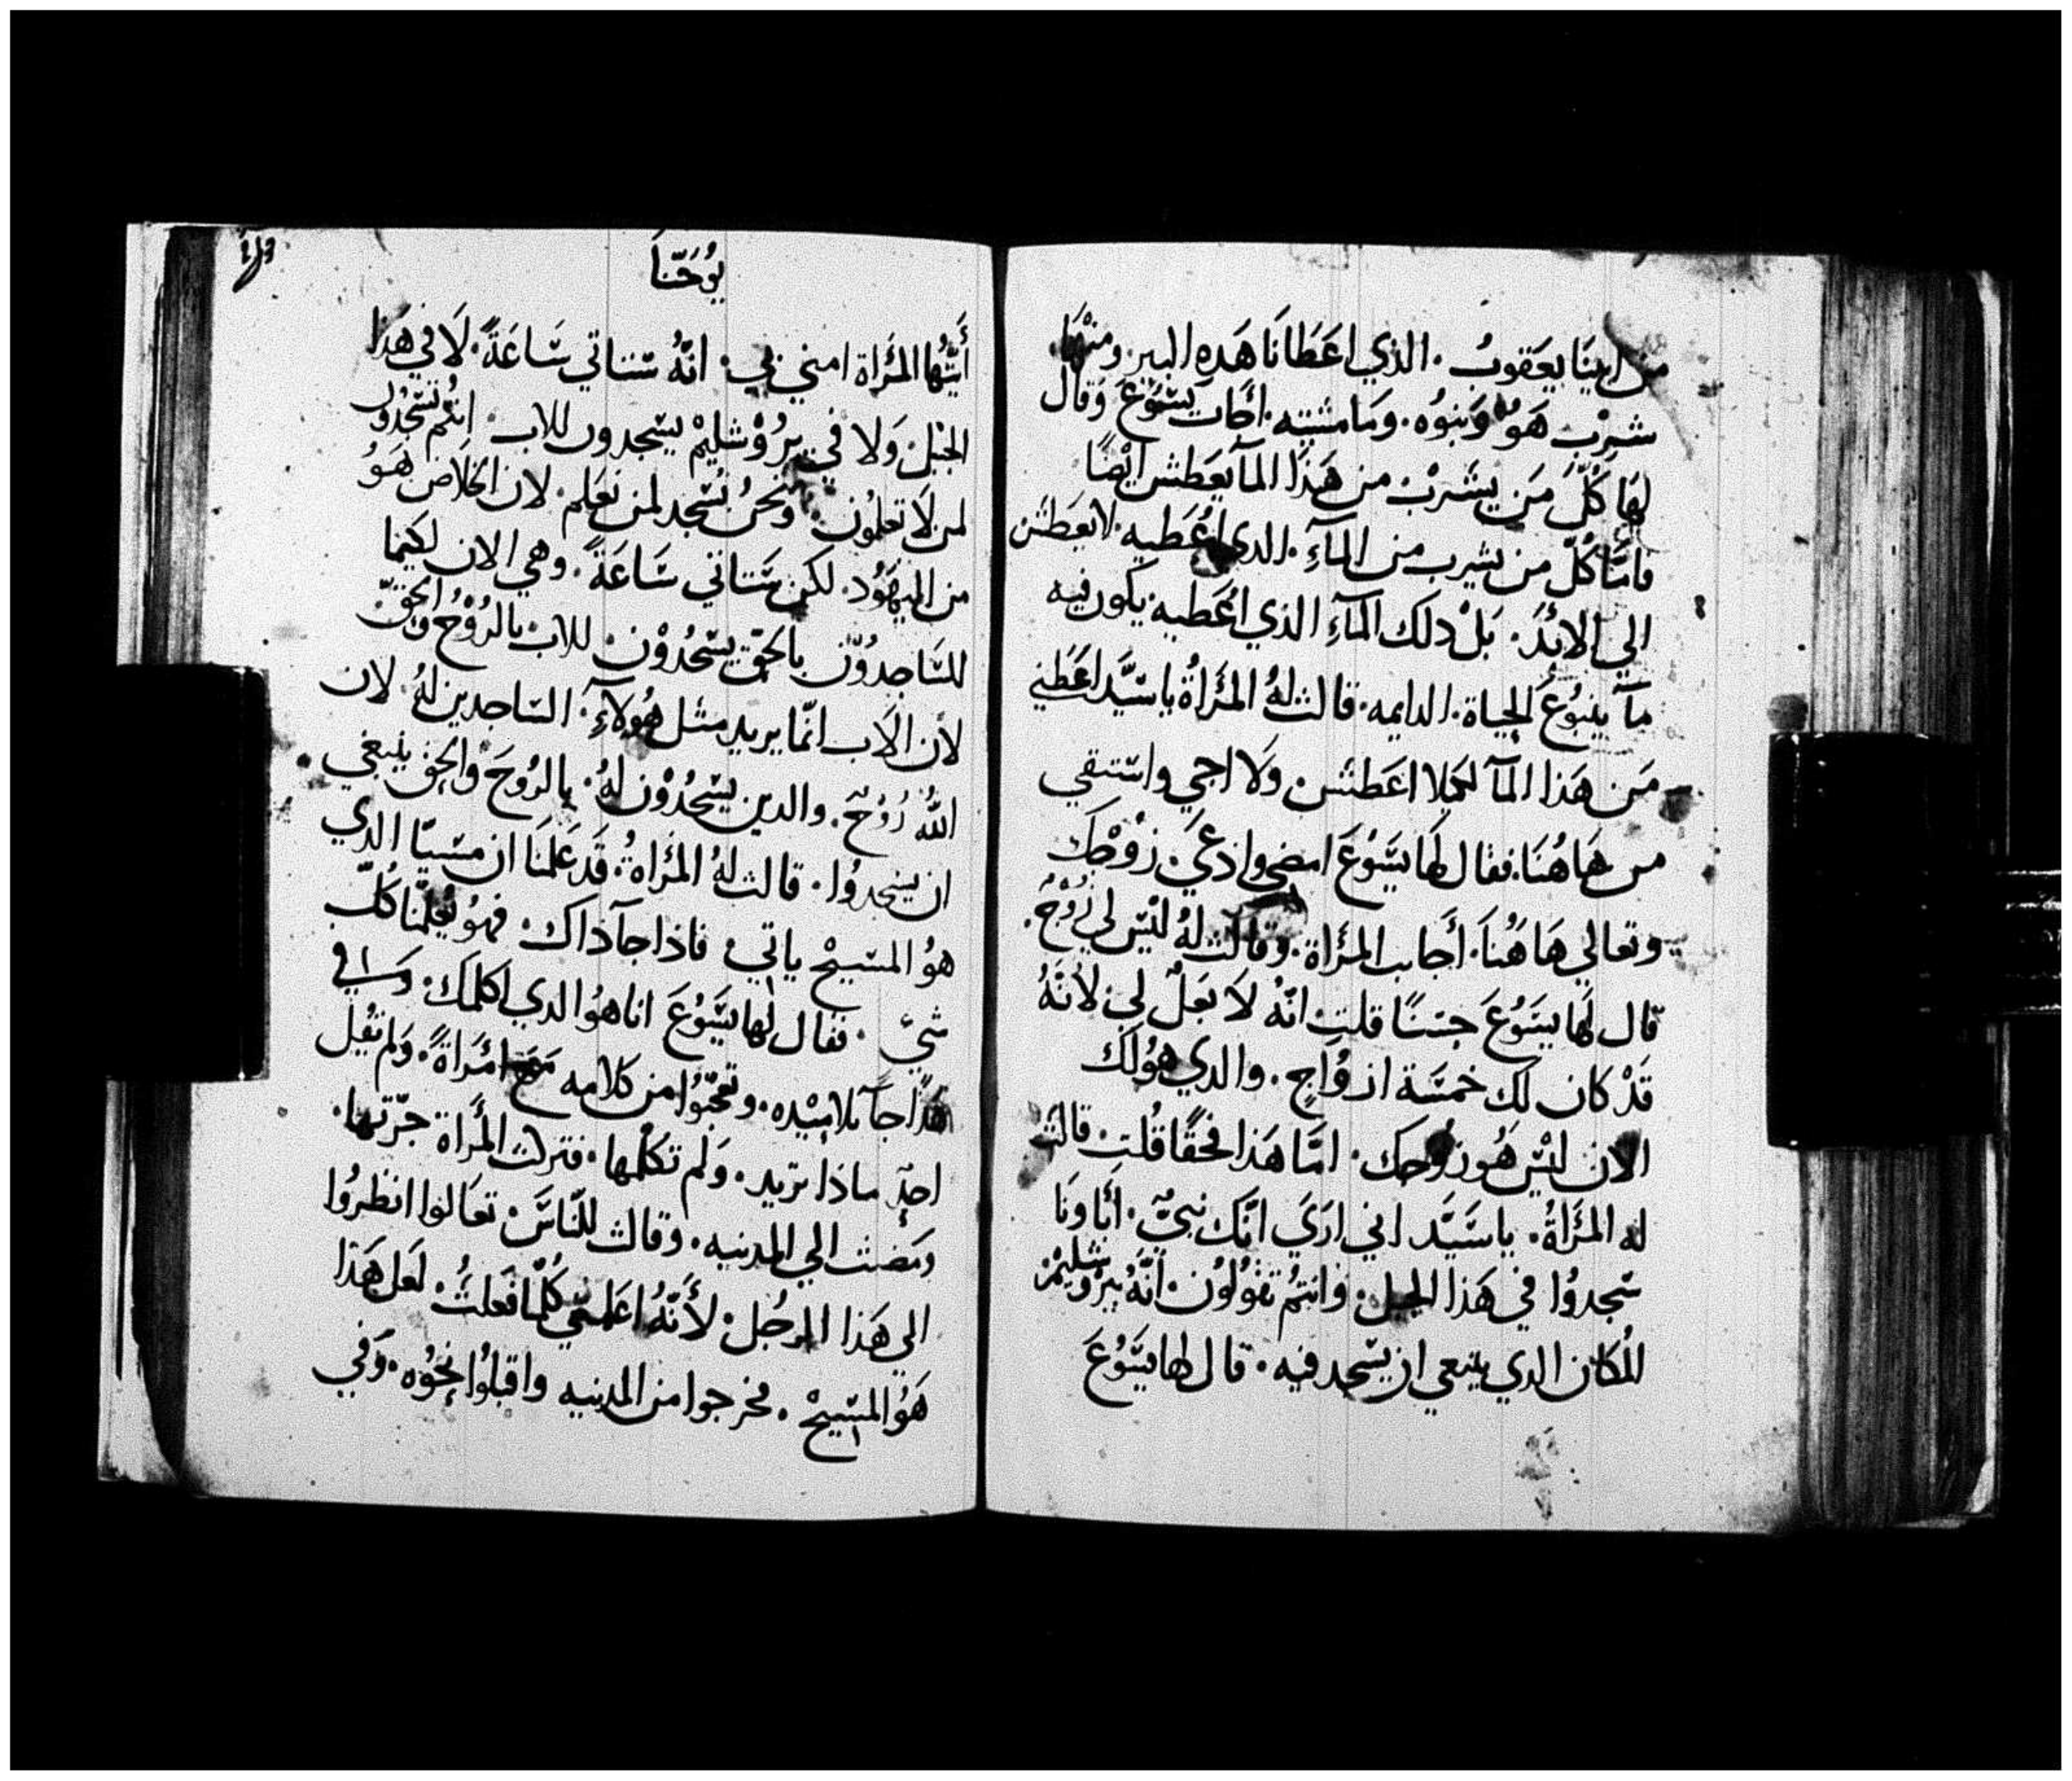 من ابينَا يعَقوبُ. الذي اعَطَانَا هَدهِ البير. ومنْهَا.
شربْ هَوُ وَبنوُه. وَمَا مشيته. أجَاب يَسَوُعَ وَقال
لهَا كُلّ مَن يشَربْ من هَذا المآ يعَطش ايْضًا
فامّا كُلّ من يشرب من المآءِ. الدي اعُطيه. لا يعَطش
الي الابَدَ. بَلْ دلك المآءِ الذي اعُطيه. يكون فيه
مآ ينبُوعَ لحياة. الدايمه. قالت لهُ المرَأةُ يا سَيَّد اعَطَني
مَن هَذا المآ لكيلا اعَطشَ وَلا اجي واستقي
من هَاهُنَا. فقال لهَا يسَوُعَ امضي وادعي. زوْجك
وتعالي هَاهُنَا. أجَابت المرَأة. وقالت لهُ ليْس لي زوْجُ.
قال لهَا يسَوُعَ حسَنًا قلتِ انّهُ لَا بعَلُ لي. لأنّهُ
قدْ كان لك خمسَة ازوُاجٍ. والدي هوُ لك
الان ليْسَ هُو زوْجك. امّا هَذا فحَقًا قُلتِ. قالت
له المرَأةُ. يا سَيَّد اني اريَ انّك نبيّ. أبَاونَا
سَجدوُا في هَذا الجبل. وانتمُ تقوُلوُن. انّهُ بيروشليمْ
المُكان الدي ينبعي ان يسَجد فيه. قال لها يسَوُعَ
يوُحَنّاَ
أيَّتُهَا المرَأة امني بي. انّهُ سَتاتي سَاعَةً. لَا في هَذا
الجبْل وَلا في يروُشليمْ يسَجدون للاب. انتُم تسَجُدُون
لمن لَا تعلموُن. ونحنُ نسَجد لمن نعَلم. لان الخلَاص هَوُ
من اليهَوُد. لكن سَتاتي سَاعَةً. وهي الان لكيما
للسَاجدوُن بالحَقّ يسَجُدُوْن للاب بالروُحْ والحَقّ
لأن الَاب انّما يريد مثل هوُلاءِ. السَاجدين لهُ لان
اللهُ رُوُحٌ. والدين يسَجُدُوْن لهُ. بالروُحَ والحق ينبغي
ان يسَجدوُا. قالت لهُ المرَأةُ. قَد عَلمنَا ان مسَيّا الدي
هوُ المسَيحْ ياتي فاذا جآ ذاك. فهوُ يُعلمّنا كُلّ
شيّ. فقال لهَا يسَوُعَ انا هوُ الدي اكلمك. وَ في
هَذا جآ تلاميْده. وتعجّبوُا من كلامه مَعَ امْرَاةً. وَلم يقُل
احدٌ ماذا تريد. وَلم تكلّمها. فتركت المرَأة جرّتها.
وَمَضت الي المدينيه. وقالت للنّاسَ. تعَالوا انظروُا
الي هَذا الرجُل. لأنّهُ اعَلمني كُلّما فَعلتُ. لعَل هَذا
هَوُ المسَيحْ. فخرجوا من المدينيه واقبلوُا نحَوُه. وَفي